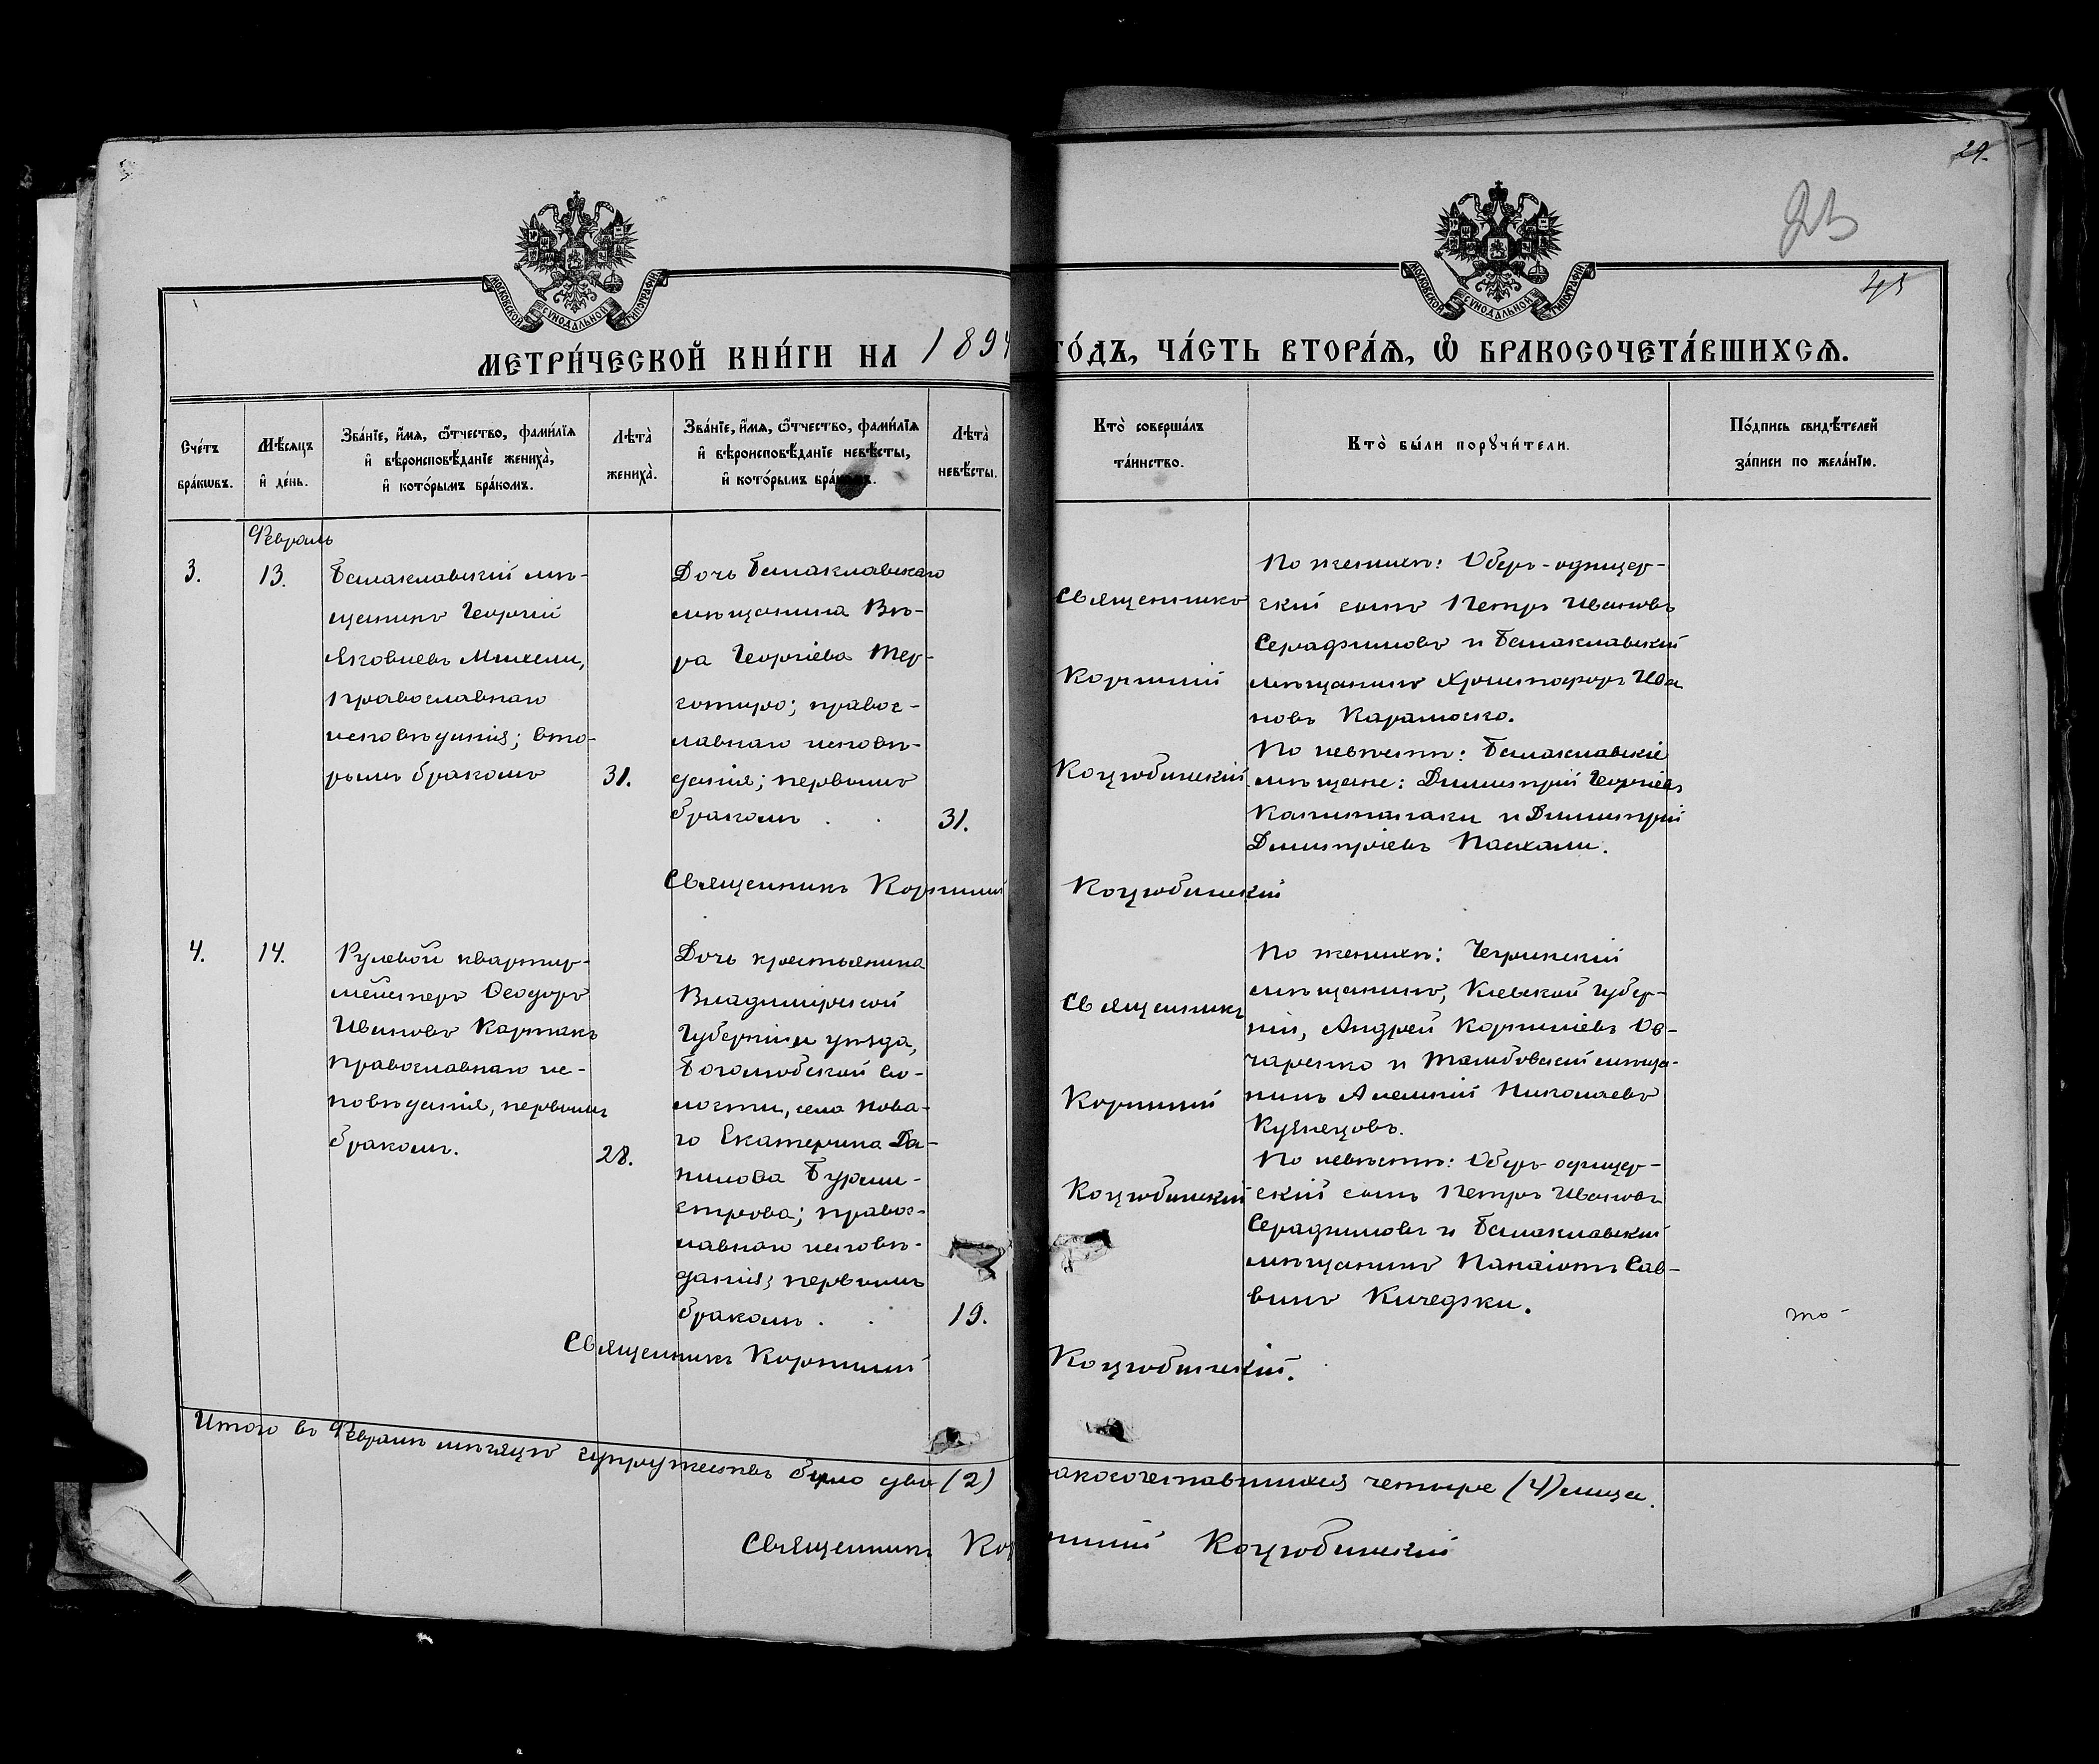 29.
45
МОСКОВСКОЙ СУНОДАЛЬНОЙ ТИПОГРАФІИ
МОСКОВСКОЙ СУНОДАЛЬНОЙ ТИПОГРАФІИ
МЕТРИ́ЧЕСКОЙ КНИ́ГИ НА 1894
ГО́ДЪ, ЧА́СТЬ ВТОРА́Я, Ѽ БРАКОСОЧЕТА́ВШИХСЯ.
Сче́тъ
бра́кѡвъ.
Мѣ́сяцъ
и҆ де́нь.
Зва́нїе, и҆́мя, ѻ҆́тчество, фами́лїя
и҆ вѣроисповѣ́данїе жениха̀,
и҆ кото́рымъ бра́комъ.
Лѣта̀
жениха̀.
Зва́нїе, и҆́мя, ѻ҆́тчество, фами́лїя
и҆ вѣроисповѣ́данїе невѣ́сты,
и҆ кото́рымъ бра́комъ.
Лѣта̀
невѣ́сты.
Кто̀ соверша́лъ
та́инство.
Кто̀ бы́ли порꙋчи́тели.
По́дпись свидѣ́телей
за́писи по жела́нїю.
Февраль
3.
13.
Балаклавскій мѣ-
щанинъ Георгій
Яковлевъ Михели,
православнаго
исповѣданія; вто-
рымъ бракомъ
31.
Дочь Балаклавскаго
мѣщанина Вѣ-
ра Георгіева Тер-
; правос-
лавнаго исповѣ-
данія; первымъ
бракомъ . .
31.
Священникъ
Корнилій
Коцюбинскій
По женихѣ: Оберъ-офицер-
скій сынъ Петръ Ивановъ
Серафимовъ и Балаклавскій
мѣщанинъ Христофоръ Ива
новъ
По невѣстѣ: Балаклавскіе
мѣщане: Димитрій Георгіевъ
Капитанаки и Димитрій
Димитріевъ Пасхали.
Священникъ Корнилій
Коцюбинскій
4.
14.
Рулевой квартир-
мейстеръ Ѳеодоръ
Ивановъ Картакъ
православнаго ис-
повѣданія, первымъ
бракомъ.
28.
Дочь крестьянина
Владимірской
Губерніи и уѣзда,
Боголюбской во-
лости, села Нова-
го Екатерина Да-
нилова Бурми-
строва; правос-
лавнаго исповѣ-
данія; первымъ
бракомъ . .
19.
Священникъ
Корнилій
Коцюбинскій
По женихѣ: Чигринскій
мѣщанинъ, Кіевской губер-
ніи, Андрей Корниліевъ Ов-
чаренко и Тамбовскій мѣща-
нинъ Алексій Николаевъ
Кузнецовъ.
По невѣстѣ: Оберъ-офицер-
скій сынъ Петръ Ивановъ
Серафимовъ и Балаклавскій
мѣщанинъ Панаіотъ Сав-
винъ Кичеджи.
то
Священникъ Корнилій
Коцюбинскій.
Итого въ Февралѣ мѣсяцѣ супружествъ было два (2)
ракосочетавшихся четыре (4) лица.
Священникъ Кор
нилій Коцюбинскій